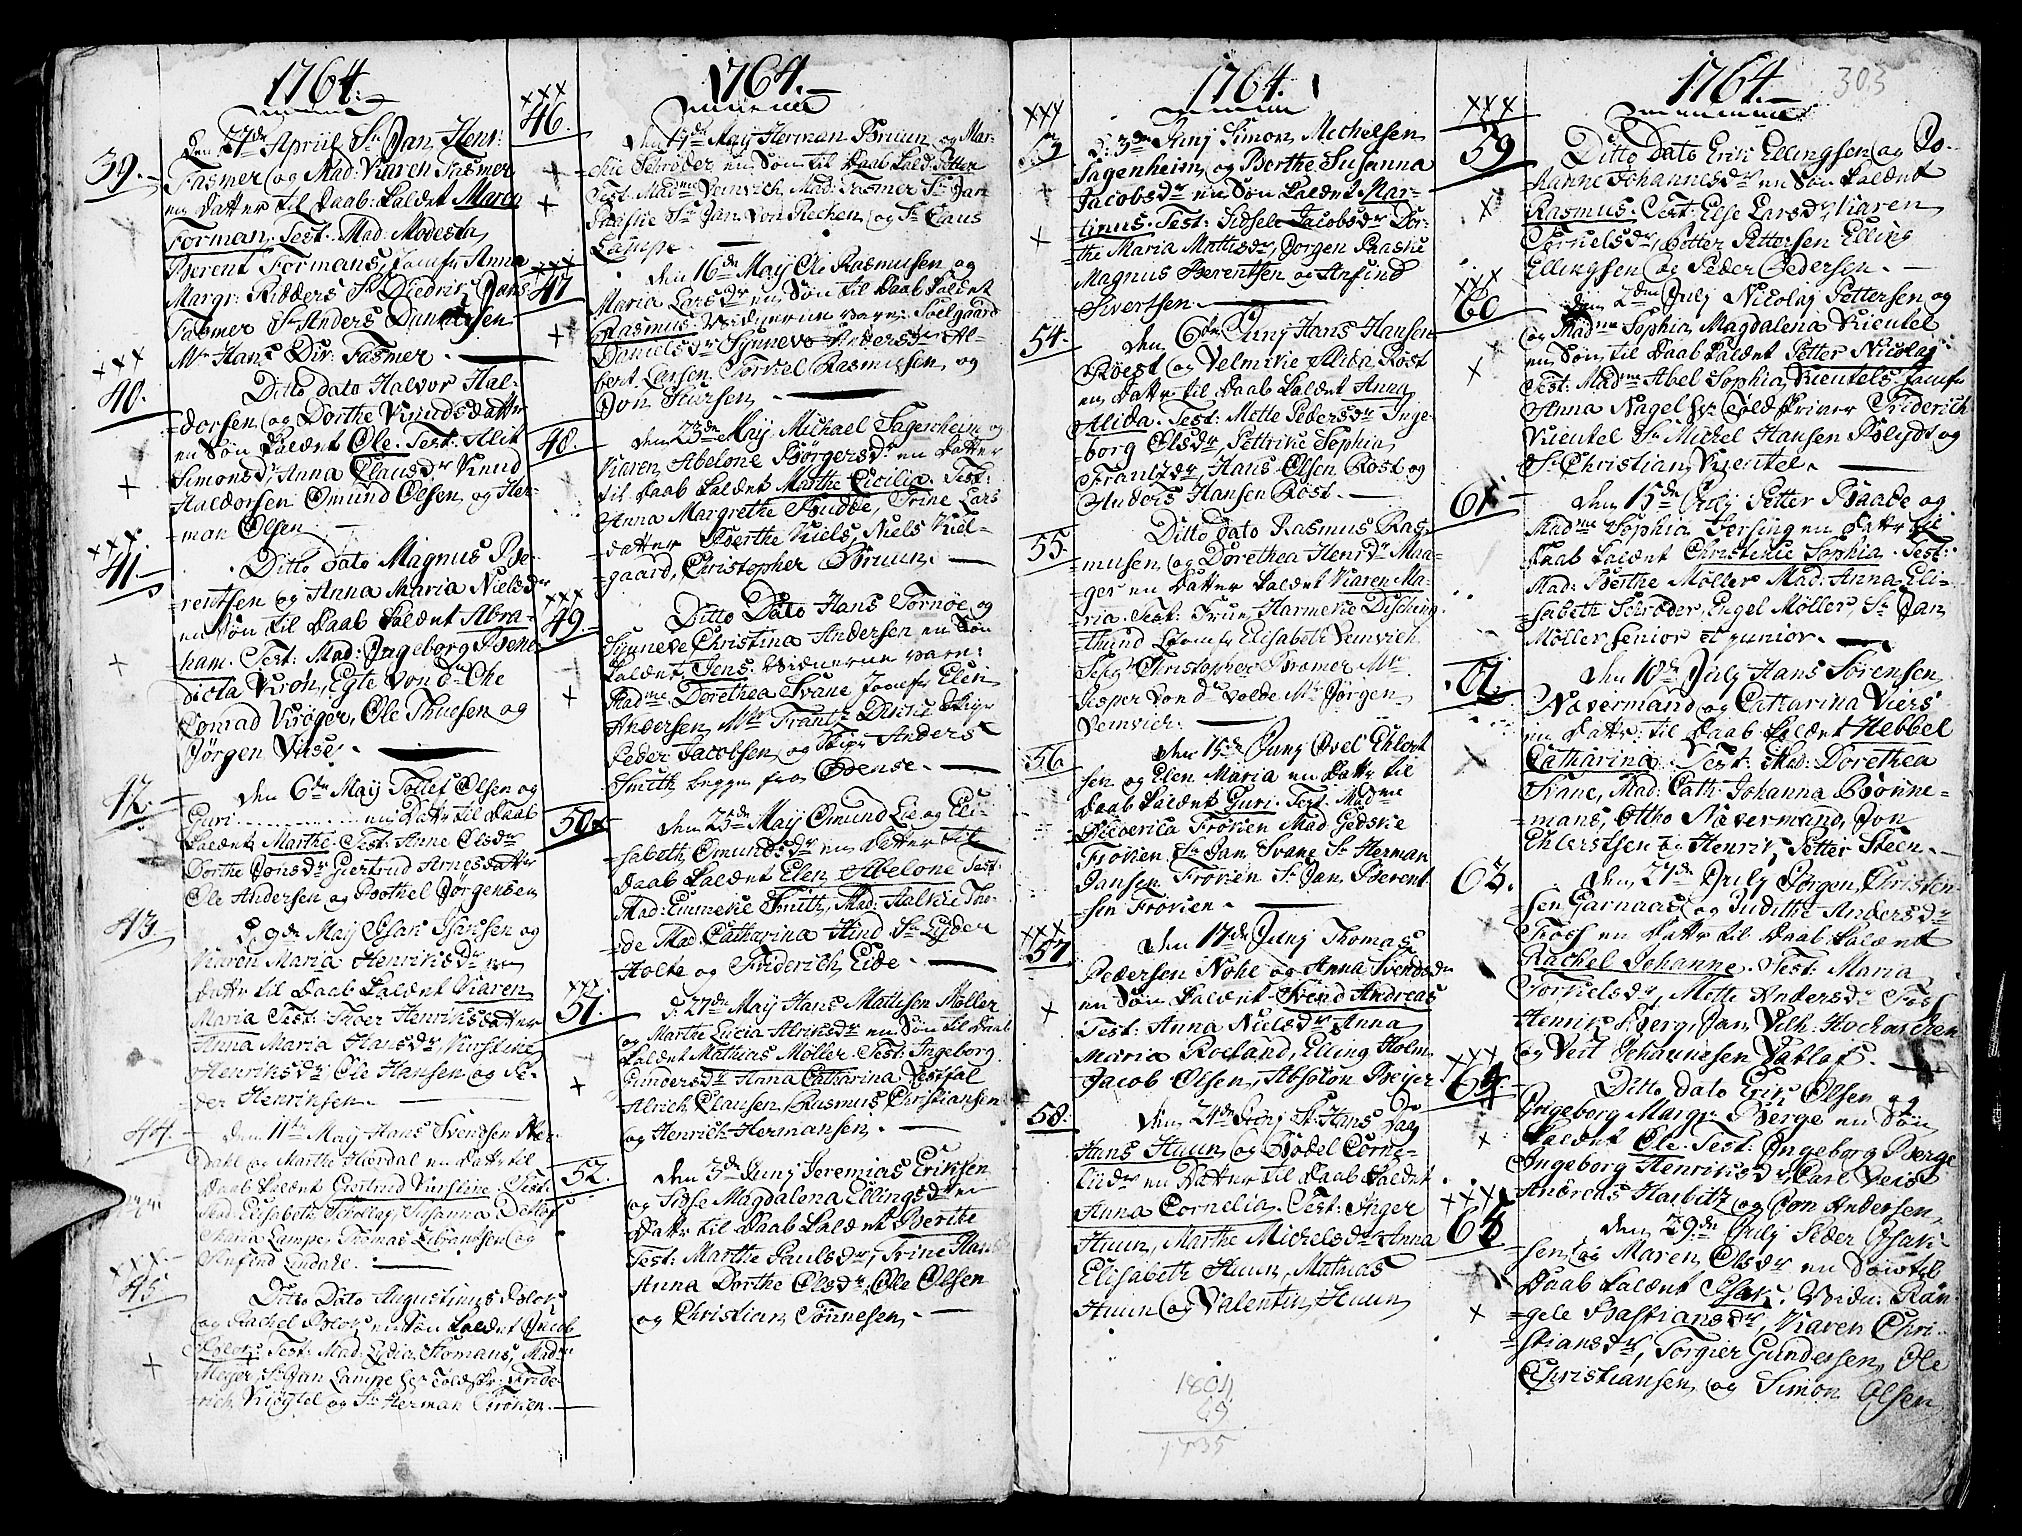 1764.
39.
Den 27de Apriil Sr. Jan Henr:
Fasmer og Mad: Karen Fasmer
en Datter til Daab: kaldet Maren
Forman. Test. Mad. Modesta
Berent Formans, Jomfr Anna
Margr: Ridders Sr. Diedrik Jans
Fasmer Sr. Anders Danielsen
Mr. Hans Div: Fasmer.
xxx
40.
Ditto Dato Halvor Hal-
dorsen og Dorthe Knuds Datter
en Søn kaldet Ole. Test:
Simonsdr Anna Clausdr Knud
Haldorsen Omund Olsen, og Her-
man Olsen
xxx
41.
Ditto Dato Magnus Be-
rentsen og Anna Maria Nielsdr
en Søn til Daab kaldet Abra-
ham. Test: Mad: Ingeborg Bene-
dicta Kroh,
Conrad Krøger, Ole Thuesen og
Jørgen Wise.
42.
Den 6te May Tollef Olsen og
Guri en Datter til Daab
kaldet Marthe. Test: Anne Olsdr
Dorthe Jonsdr Giertrud Arnesdatter
Ole Andersen og Bothel Jørgensen
43.
D. 9de May Isak Isaksen og
Karen Maria Henriksdr en
Datter til Daab kaldet Karen
Maria Test: Henriksdatter
Anna Maria Hansdr, Kirstine
Henriksdr, Ole Hansen og Pe-
der Henriksen.
44.
Den 11te May Hans Svendsen
Dahl og Marthe Hierdal en Datter til
Daab kaldet Giertrud Kirstine. Test:
Mad: Elisabeth Susanna Detlof
Maria Lampe, Thomas og
Lindahl.
xxx
45.
Ditto Dato Augustinus
og Rachel en Søn kaldet Jacob
Test: Mad: Lydia Thomans, Mad:
Meyer, Sr. Jan Lampe Hr Told Fride-
rich Krøgtel og Sr. Herman Frørien.
1764.
xxx
46.
Den 14de May Herman Bruun og Mar-
Schrøder en Søn til Daab kald: Ditten
Test: Madme Mad: Fasmer Sr. Jan
Sr. Jan von Recken, og Sr. Claus
Lampe.
xxx
47
Den 16de May Ole Rasmusen og
Maria Larsdr en Søn til Daab kaldet
Rasmus. Vidnerne vare: Solgaard
Danielsdr Synneve Andersdr Al-
bert Larsen, Torkel Rasmusen, og
Jon Siursen.
48.
Den 23de May Michael Sagenheim og
Karen Abelone Børgersdr en Datter
til Daab kaldet Marthe Cicilia. Test:
Anna Margrethe Budde, Trine Lars
datter Berthe Kiels, Niels Kiel-
gaard, Christopher Bruun.
xxx
49.
Ditto Dato Hans Tornøe og
Synneve Christina Andersen en Søn
kaldet Jens. Vidnerne vare:
Madme Dorethea Svane Jomfr Elen
Andersen, Mr Frantz Skip:
Peder Jacobsen og Skipr Anders
Smith begge fra Odense.
50.
Den 25de May Omund Lie og Eli-
sabeth Omundsdr en Datter til
Daab kaldet Elen Abelone Test:
Mad: Emmekie Smith, Mad: Tho-
de Mad Catharina Hind Sr. Eyder
Holte og Friderich Eide.
xxx
51.
D. 27de May Hans Mattisen Møller
og Marthe Lucia Alriksdr en Søn til Daab
kaldet Mathias Møller. Test: Ingeborg
Gundersdr Anna Catharina Vestfal
Alrich Clausen Rasmus Christiansen
og Henrich Hermansen.
52.
Den 3de Juny Jeremias Eriksen
og Magdalena Ellingsdr en
Datter til Daab kaldet Berthe
Test: Marthe Paulsdr, Trine Hans
Anna Dorthe Olsdr, Ole Olsen
og Christian Tønnesen.
1764.
xxx
53
D: 3de Juny Simon Mechelsen
Sagenheim og Berthe Susanna
Jacobsdr en Søn kaldet Mar-
tinus. Test: Sidsele Jacobsdr Dor-
the Maria Mathisdr, Jørgen
Magnus Berentsen og Arfind
Sivertsen.
54.
Den 6te Juny Hans Hansen
Roest og Velmikie Alida Rost
en Datter til Daab kaldet Anna
Alida. Test: Mette Pedersdr Inge-
borg Olsdr, Pettrike Sophia
Frantzdr, Hans Olsen Rost og
Hansen Rost.
55.
Ditto Dato Rasmus Ras-
musen og Dorethea Henrdr Mau-
ger en Datter kaldet Karen Ma-
ria. Test: Frue Harmekie
Elisabeth Vemvich
Christopher Bremer Mr.
Jesper Mr Jørgen
Vemvich.
56
Den 15de Juny Axel Ehlert-
sen og Elen Maria en Datter til
Daab kaldet Guri. Test. Madme
Diderica Frørien Mad Gedskie
Frørien Sr. Jan Svane Sr Herman
Jansen Frørien Sr. Jan Berent-
sen Frørien.
xxx
57.
Den 17de Juny Thomas
Pedersen Nohe og Anna Svendsdr
en Søn kaldet Svend Andreas
Test: Anna Nielsdr Anna
Maria Roeland, Elling Holm,
Jacob Olsen, Absolon Beijer
58.
Den 24de Juny St. Hans Dag
Hans Huun, og Bodel Corne-
liidr en Datter til Daab kaldet
Anna Cornelia. Test: Inger
Huun, Marthe Michelsdr Anna
Elisabeth Huun, Mathias
Huun og Valentin Huun
1804
69
1735
1764.
303
xxx
59
Ditto Dato Erik Ellingsen og Jo-
hanne Johannesdr en Søn kaldet
Rasmus. Test: Else Larsdr, Karen
Torkielsdr, Petter Pettersen Elling
Ellingsen og Peder Pedersen.
xxx
60
Den 2den July Nicolaj Pettersen og
og Madme Sophia Magdalena Kientel
en Søn til Daab kaldet Petter Nicolaj
Test: Madme Abel Sophia Kientels Jomfr
Anna Nagel Hr. Friderich
Kientel Sr. Michel Hansen Blydt og
Sr. Christian Kientel.
61.
Den 15de July Petter Baade og
Madme Sophia Forsing en Datter til
Daab kaldet Christenkie Sophia. Test:
Mad: Berthe Møller Mad: Anna Eli-
sabeth Schrøder Engel Møller, Sr. Jan
Møller senior et junior.
62.
Den 18de July Hans Sørensen
Nævermand og Catharina Viers
en Datter: til Daab kaldet Hebbel
Catharina. Test: Mad: Dorethea
Svane, Mad: Cath: Johanna Bonne-
mans, Ottho Næverman, Jon
Ehlertsen og Henrik Petter Steen.
63.
Den 27de July Jørgen Christen-
sen Garnaas og Judithe Andersdr
Foss en Datter til Daab kaldet
Rachel Johanne. Test: Maria
Torkielsdr, Mette Andersdr Foss
Henrik Berg, Jan Vilh: Hochkirchen
og Veit Johannesen Datlof.
xxx
64
Ditto Dato Erik Olsen og
Ingeborg Margr. Berge en Søn
kaldet Ole. Test: Ingeborg Berge
Ingeborg Henriksdr, Carl Veis
Andreas Harbitz og Jon Andersen.
xxx
65
Den 29de July Peder Isak-
sen og Maren Olsdr en Søn til
Daab kaldet Isak. Vidn: Ran-
gele Bastiansdr, Karen Chri-
stiansdr, Torgier Gundersen, Ole
Christiansen, og Simon Olsen